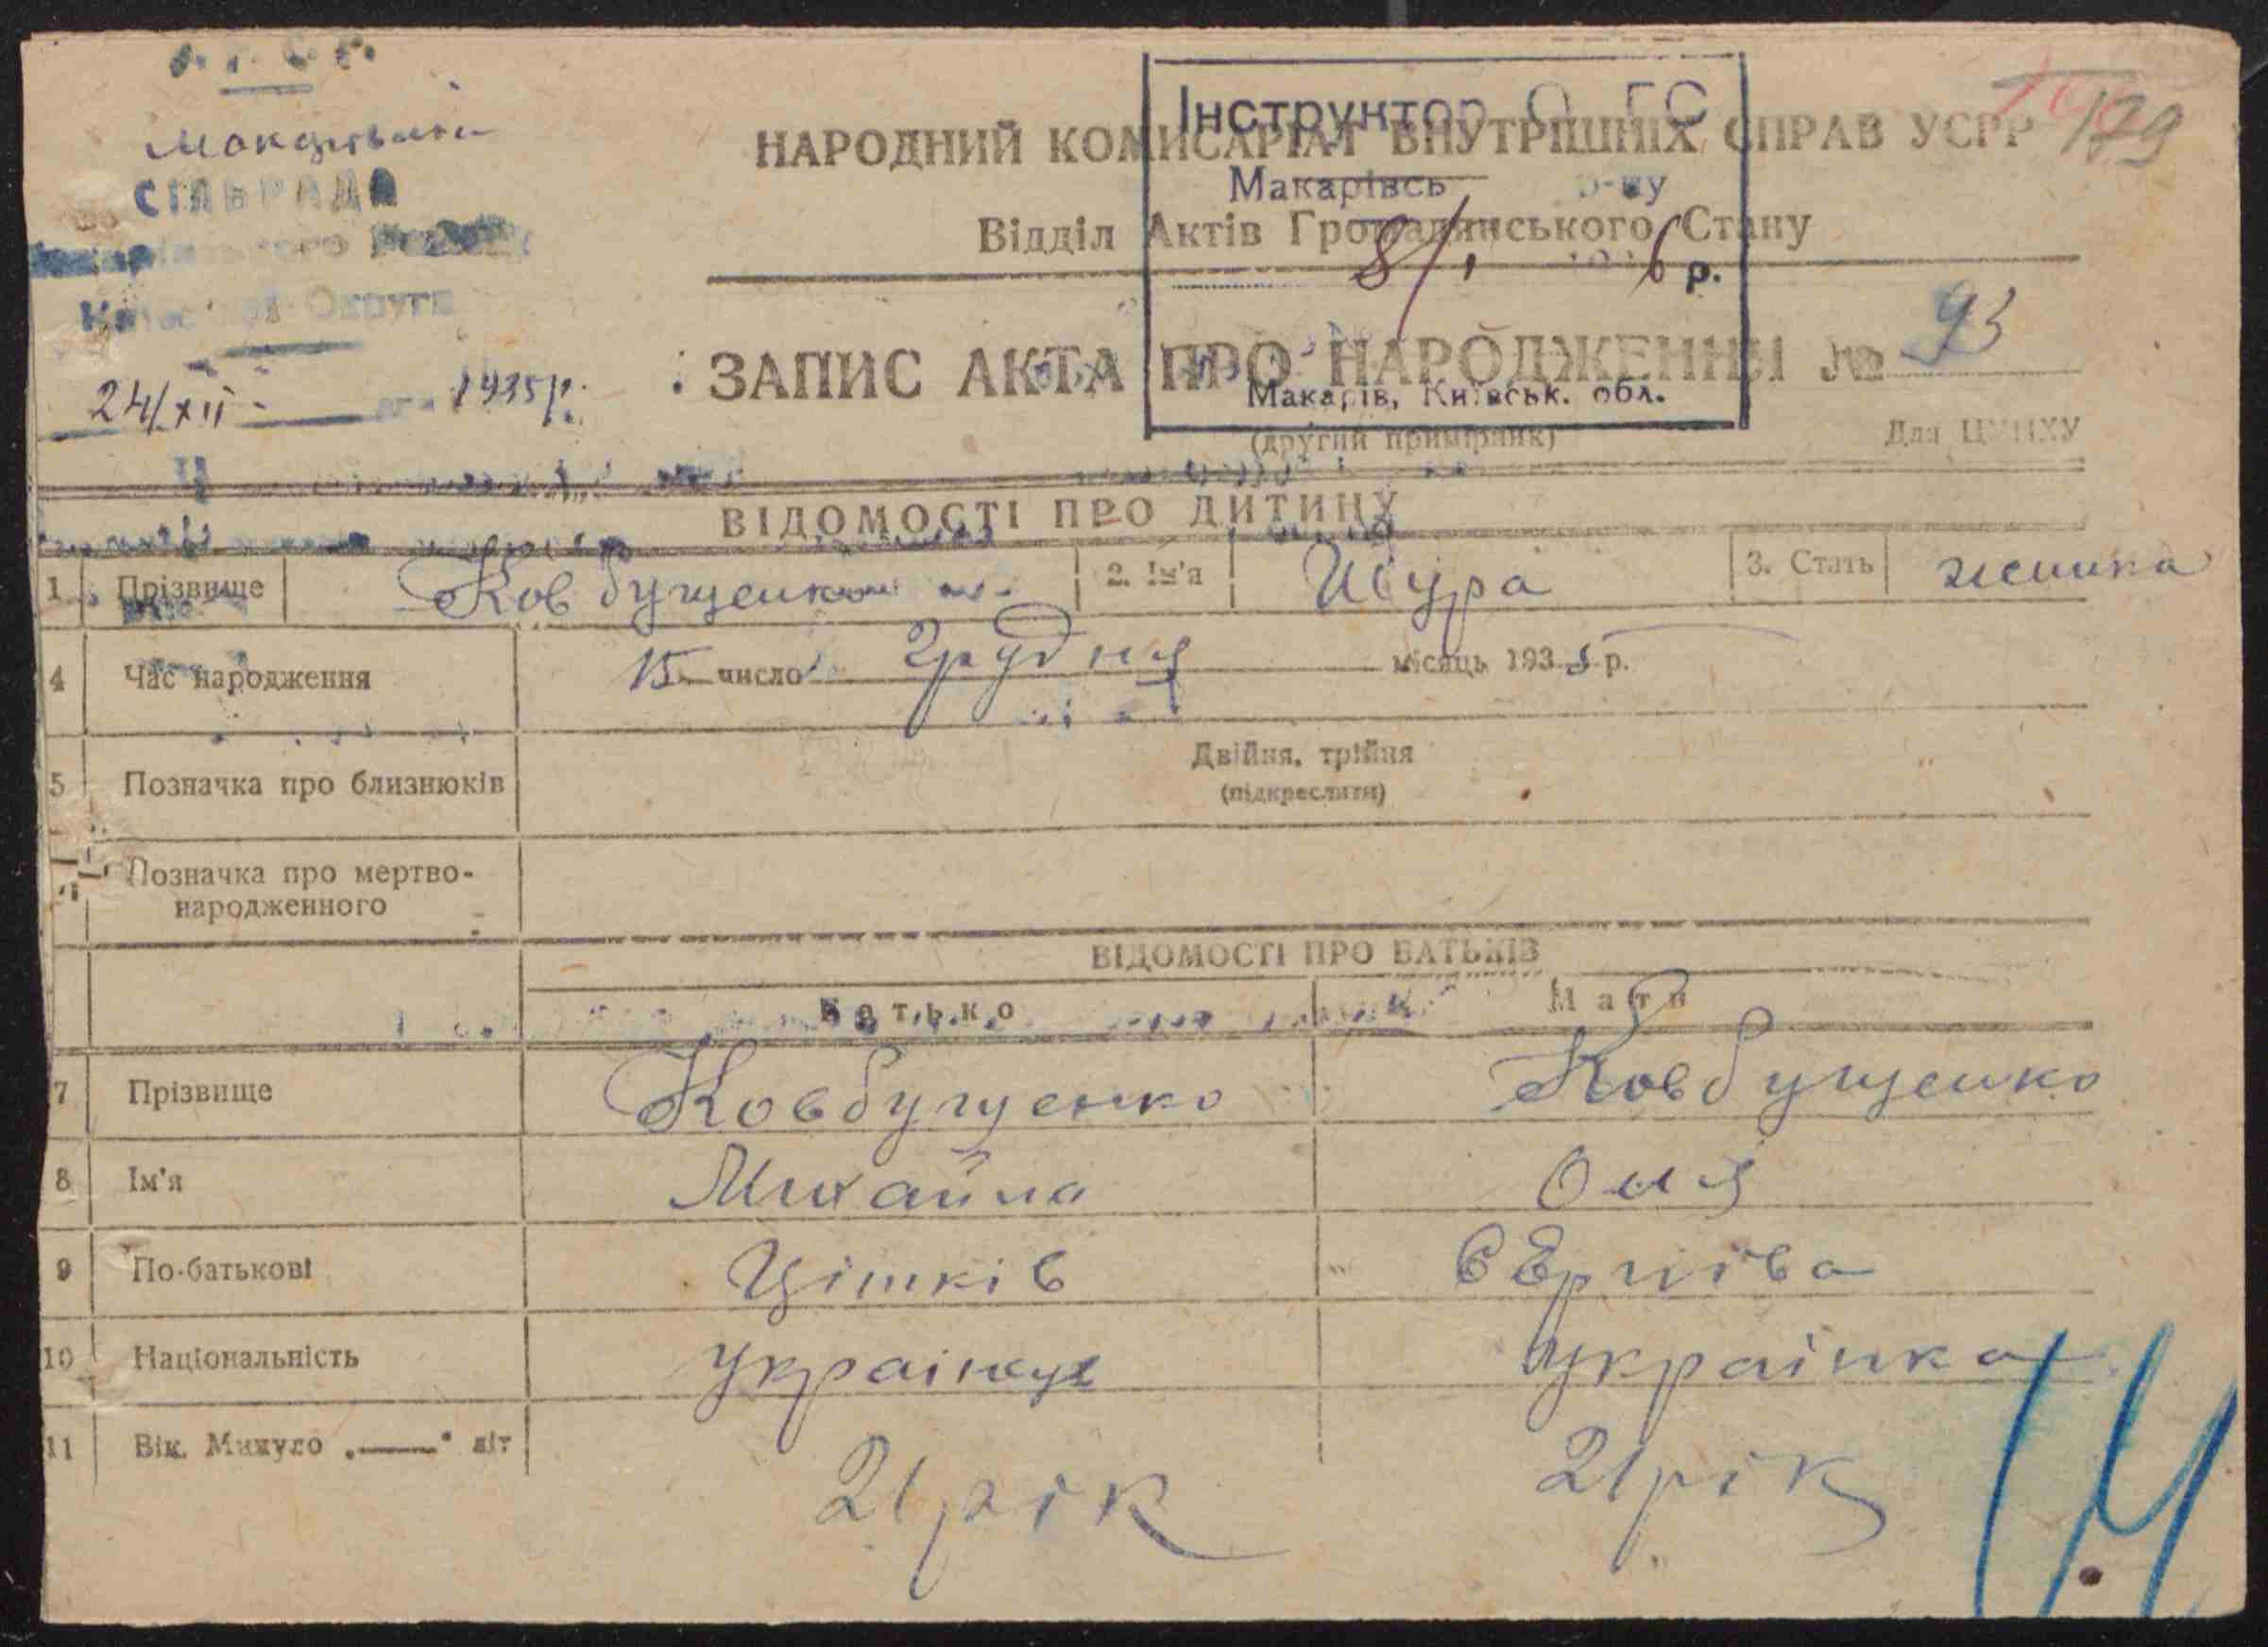 179
СІЛЬРАДА
Округи
24/XII - 1935 р.
Інструктор
Макарівсь р-ну
8/І 6 р.
Макарів, Київськ. обл.
НАРОДНИЙ КОМИСАРІАТ ВНУТРІШНІХ СПРАВ УСРР
Відділ Актів Громадянського Стану
ЗАПИС АКТА ПРО НАРОДЖЕННЯ № 93
(другий примірник)
Для ЦУНХУ
ВІДОМОСТІ ПРО ДИТИНУ
1 Прізвище 2. Ім'я Шура 3. Стать жінка
4 Час народження 15 число Грудня місяць 1935 р.
5 Позначка про близнюків Двійня, трійня
(підкреслити)
Позначка про мертво-
народженного
ВІДОМОСТІ ПРО БАТЬКІВ
Батько Мати
7 Прізвище Ковбущенко Ковбущенко
8 Ім'я Михайла
9 По-батькові
10 Національність українка
11 Вік. Минуло „——" літ 21 рік 21 рік